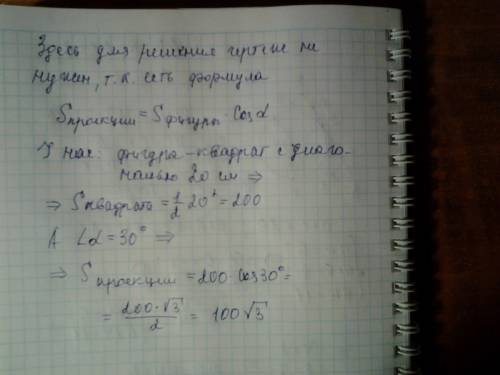 Здесь для решения чертеж не
нужен, т.к. есть формула
Sпроекции = Sфигуры · Cosα
У нас: фигура - квадрат с диаго-
налью 20 см ⇒
⇒ Sквадрата = 1/2 20² = 200
А ∠α = 30° ⇒
⇒ Sпроекции = 200 · Cos30° =
= 200·√3/2 = 100√3